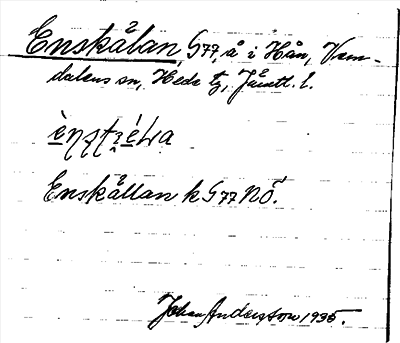 Enskålan, G77, å i Hån, Vem-
dalens sn, Heds tg, Jämtl. l.
Enskållan k G77 NÖ.
Johan Andersson 1935.